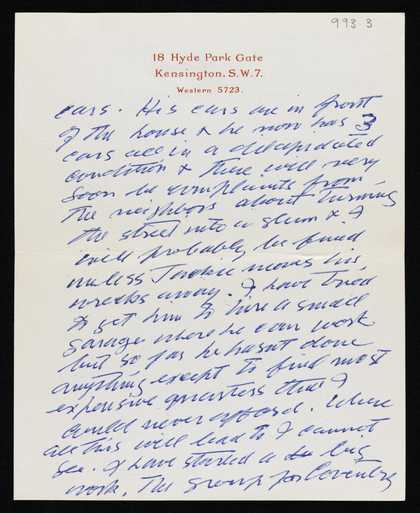 993 3
18 Hyde Park Gate
Kensington. S.W.7.
Western 5723.
cars. His cars are in front
of the house & he now has 3
cars all in a delapidated
condition & there will very
soon be complaints from
the neighbors about turning
the street into a slum & I
will probably be fined
unless Jackie moves his
wrecks away. I have tried
to get him to hire a small
garage where he can work
but so far he hasn't done
anything except to find most
expensive quarters that I
could never afford. Where
all this will lead to I cannot
see. I have started a big
work. The group for Coventry